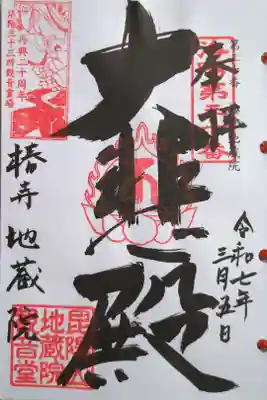 奉拝
大悲殿
令和七年
三月五日
椿寺地蔵院
再興二十周年
洛陽三十三所観音霊場
昆陽山
地蔵院
観音堂